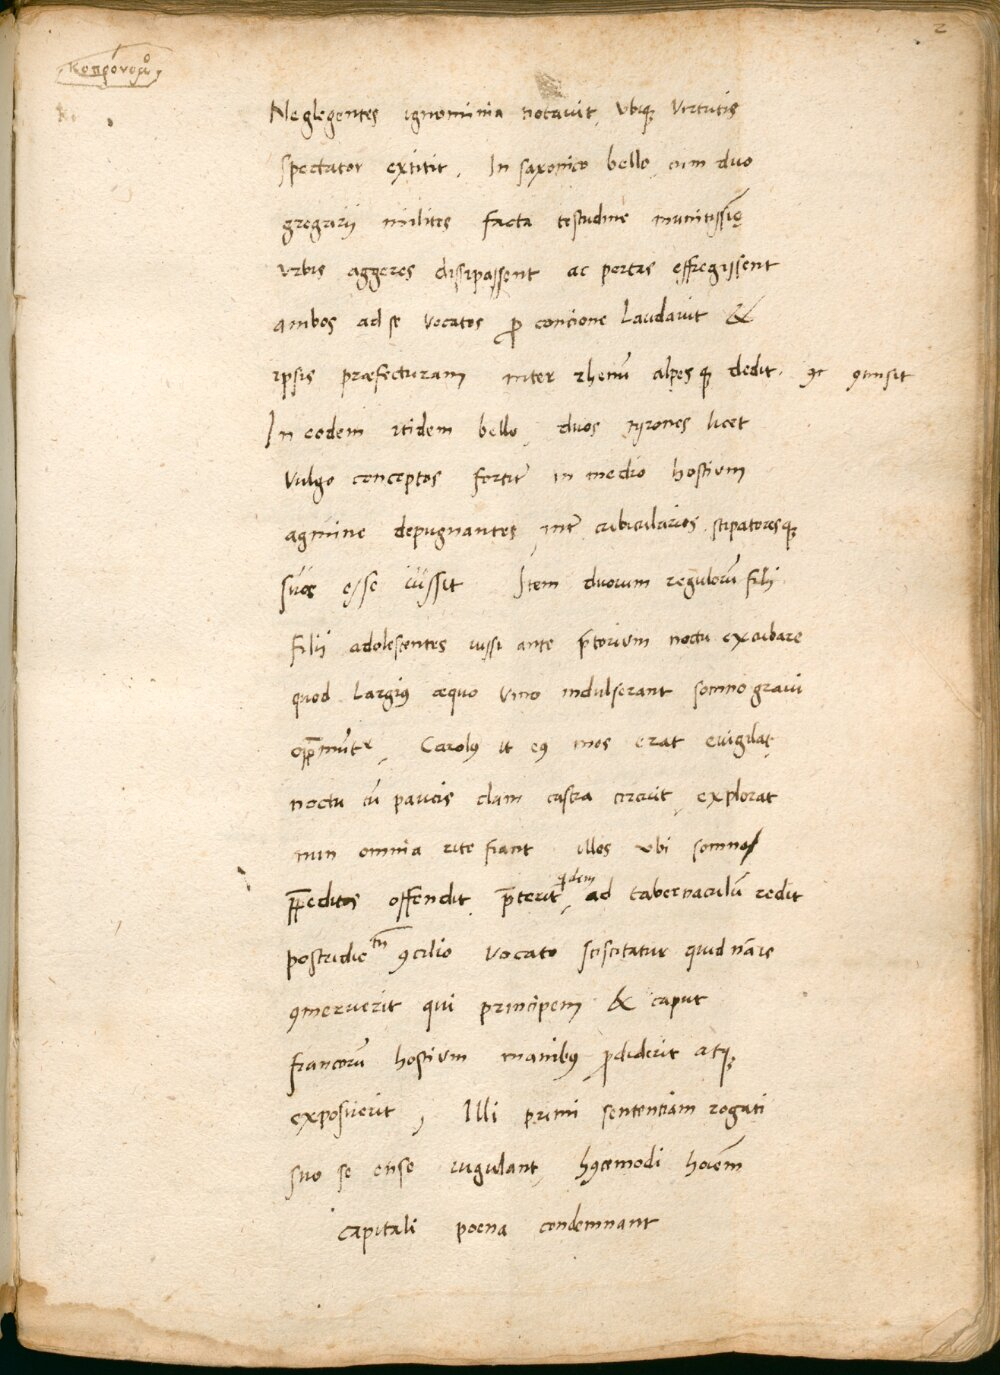 2
Neglegentes ignominia notavit, vbiqꝫ Virtutis
spectator extitit, In saxonico bello, cum duo
gregarij milites facta testudine munitissimę
vrbis aggeres dissipassent ac portas effregissent
ambos ad se vocatos ꝓ concione Laudavit &
ipsis præfecturam inter rhenū alpesqꝫ dedit.
In eodem itidem bello, duos tyrones licet
Vulgo conceptos fortit̄ in medio hostium
agmine depugnantes, int̄ cubicularios stipatoresqꝫ
suos esse iussit Item duorum regulorū filij
filij adolescentes iussi ante p̄torium noctu excubare
quod Largiꝰ æquo vino indulserant somno gravi
opp̄munt̄, Carolꝰ ut eiꝰ mos erat evigilat
noctu cū paucis clam castra circuit, explorat
num omnia rite fiant illos vbi somno
offendit, p̄terit, ad tabernaculū redit
postridie ꝯcilio vocato sciscitatur quid
ꝯmeruerit qui principem & caput
francorū hostium manibꝰ ꝓdiderit atqꝫ
exposuerit, Illi primi sententiam rogati
suo se ense iugulant, hꝰcemodi hoīem
capitali poena condemnant